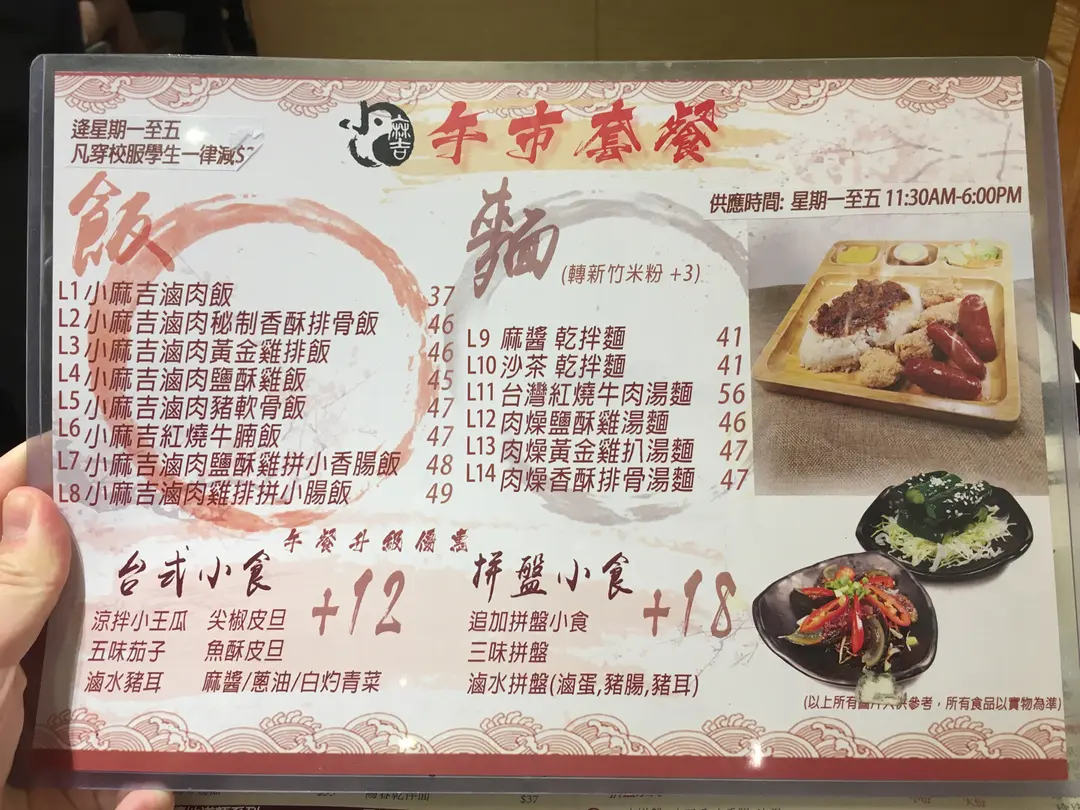 逢星期一至五
凡穿校服學生一律減$
小麻吉
午市套餐
供應時間: 星期一至五 11:30AM-6:00PM
飯
L1 小麻吉滷肉飯 37
L2 小麻吉滷肉秘制香酥排骨飯 46
L3 小麻吉滷肉黃金雞排飯 46
L4 小麻吉滷肉鹽酥雞飯 45
L5 小麻吉滷肉豬軟骨飯 47
L6 小麻吉紅燒牛腩飯 47
L7 小麻吉滷肉鹽酥雞拼小香腸飯 48
L8 小麻吉滷肉雞排拼小腸飯 49
麵
(轉新竹米粉 +3)
L9 麻醬 乾拌麵 41
L10 沙茶 乾拌麵 41
L11 台灣紅燒牛肉湯麵 56
L12 肉燥鹽酥雞湯麵 46
L13 肉燥黃金雞扒湯麵 47
L14 肉燥香酥排骨湯麵 47
午餐升級優惠
台式小食 +12
涼拌小王瓜 尖椒皮旦
五味茄子 魚酥皮旦
滷水豬耳 麻醬/蔥油/白灼青菜
拼盤小食 +18
追加拼盤小食
三味拼盤
滷水拼盤(滷蛋,豬腸,豬耳)
(以上所有圖片只供參考，所有食品以實物為準)
$37